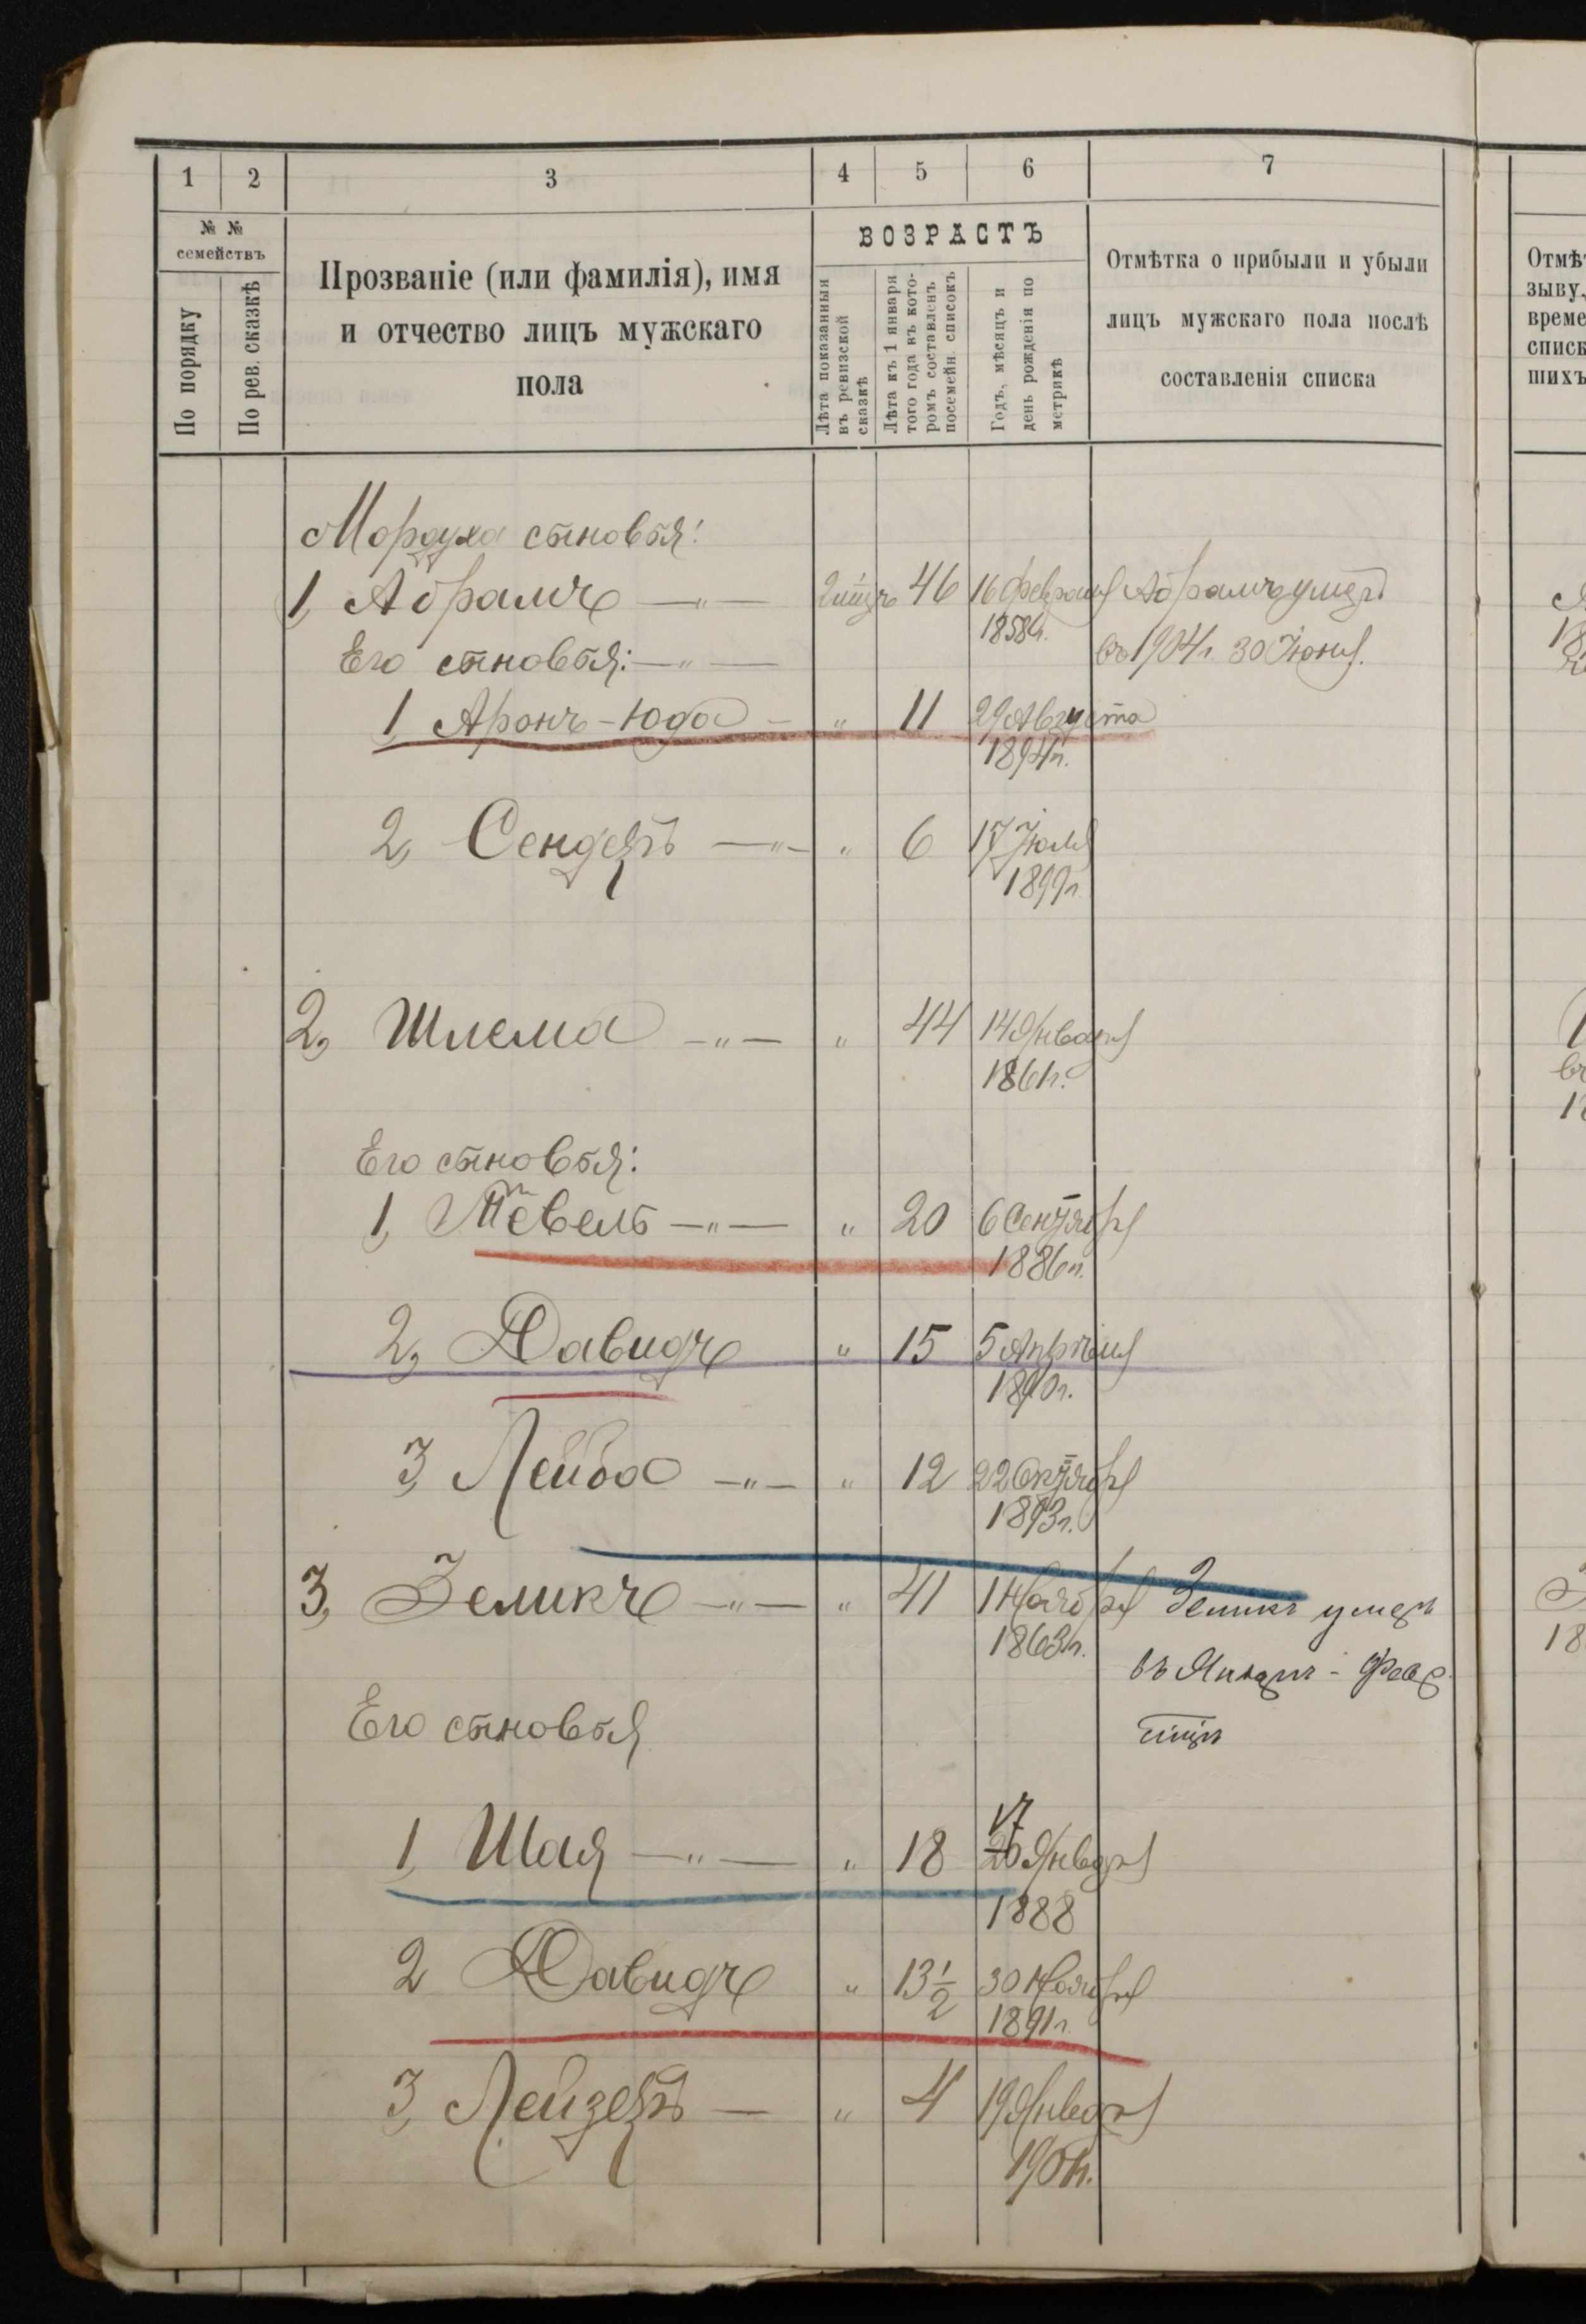 1 2 3 4 5 6 7
№ № семействъ
По порядку
По рев. сказкѣ
Прозваніе (или фамилія), имя
и отчество лицъ мужскаго
пола
ВОЗРАСТЪ
Лѣта показанныя
въ ревизской
сказкѣ
Лѣта къ 1 января
того года въ кото-
ромъ составленъ
посемейн. списокъ
Годъ, мѣсяцъ и
день рожденія по
метрикѣ
Отмѣтка о прибыли и убыли
лицъ мужскаго пола послѣ
составленія списка
Отмѣт
зыву,
време
списк
шихъ
Мордуха сыновья:
1, Абрамъ —„— 46 16 Февраля Абрамъ умеръ
1858г.
Его сыновья: —„— въ 1904г. 30 Іюня.
1, Аронъ-Юда — „ 11 29 Августа
1894г.
2, Сендеръ —„— „ 6 17 Іюля
1899г.
2, Шлема —„— „ 44 14 Января
1861г.
Его сыновья:
1, Тевель —„— „ 20 6 Сентября
1886г.
2, Давидъ „ 15 5 Апрѣля
1890г.
3, Лейба —„— „ 12 22 Октября
1893г.
3, Зеликъ —„— „ 41 1 Ноября Зеликъ умеръ
1863г.
въ
Его сыновья
1, Шая —„— „ 18 17 20 Января
1888
2 Давидъ „ 13 1/2 30 Ноября
1891г.
3, Лейзеръ — „ 4 19 Января
1901г.